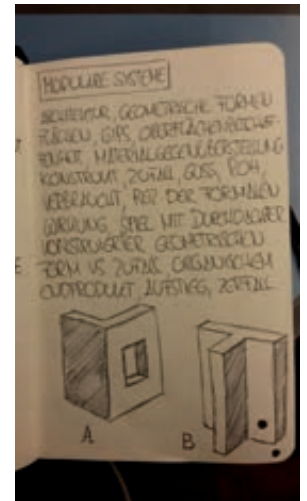 MODULARE SYSTEME
ARCHITEKTUR, GEOMETRISCHE FORMEN
FLÄCHEN, GIPS, OBERFLÄCHENBESCHAF-
FENHEIT, MATERIALGEGENÜBERSTELLUNG
KONSTRUKT ZUFALL, GUSS, ROH,
VERBRAUCHT, REIZ DER FORMALEN
WIRKUNG, SPIEL MIT DURCHDACHTER
KONSTRUIERTER GEOMETRISCHEN
FORM VS ZUFALL ORGANISCHEM
ENDPRODUKT, AUFSTIEG, ZERFALL
A B